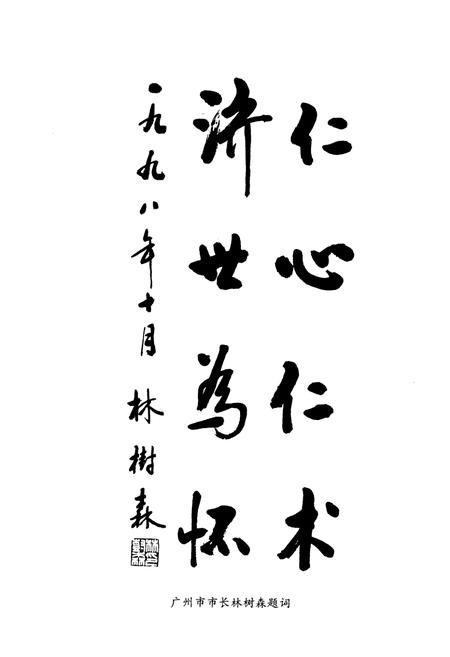 仁心仁术
济世為怀
一九九八年十月 林樹森
广州市市长林树森题词